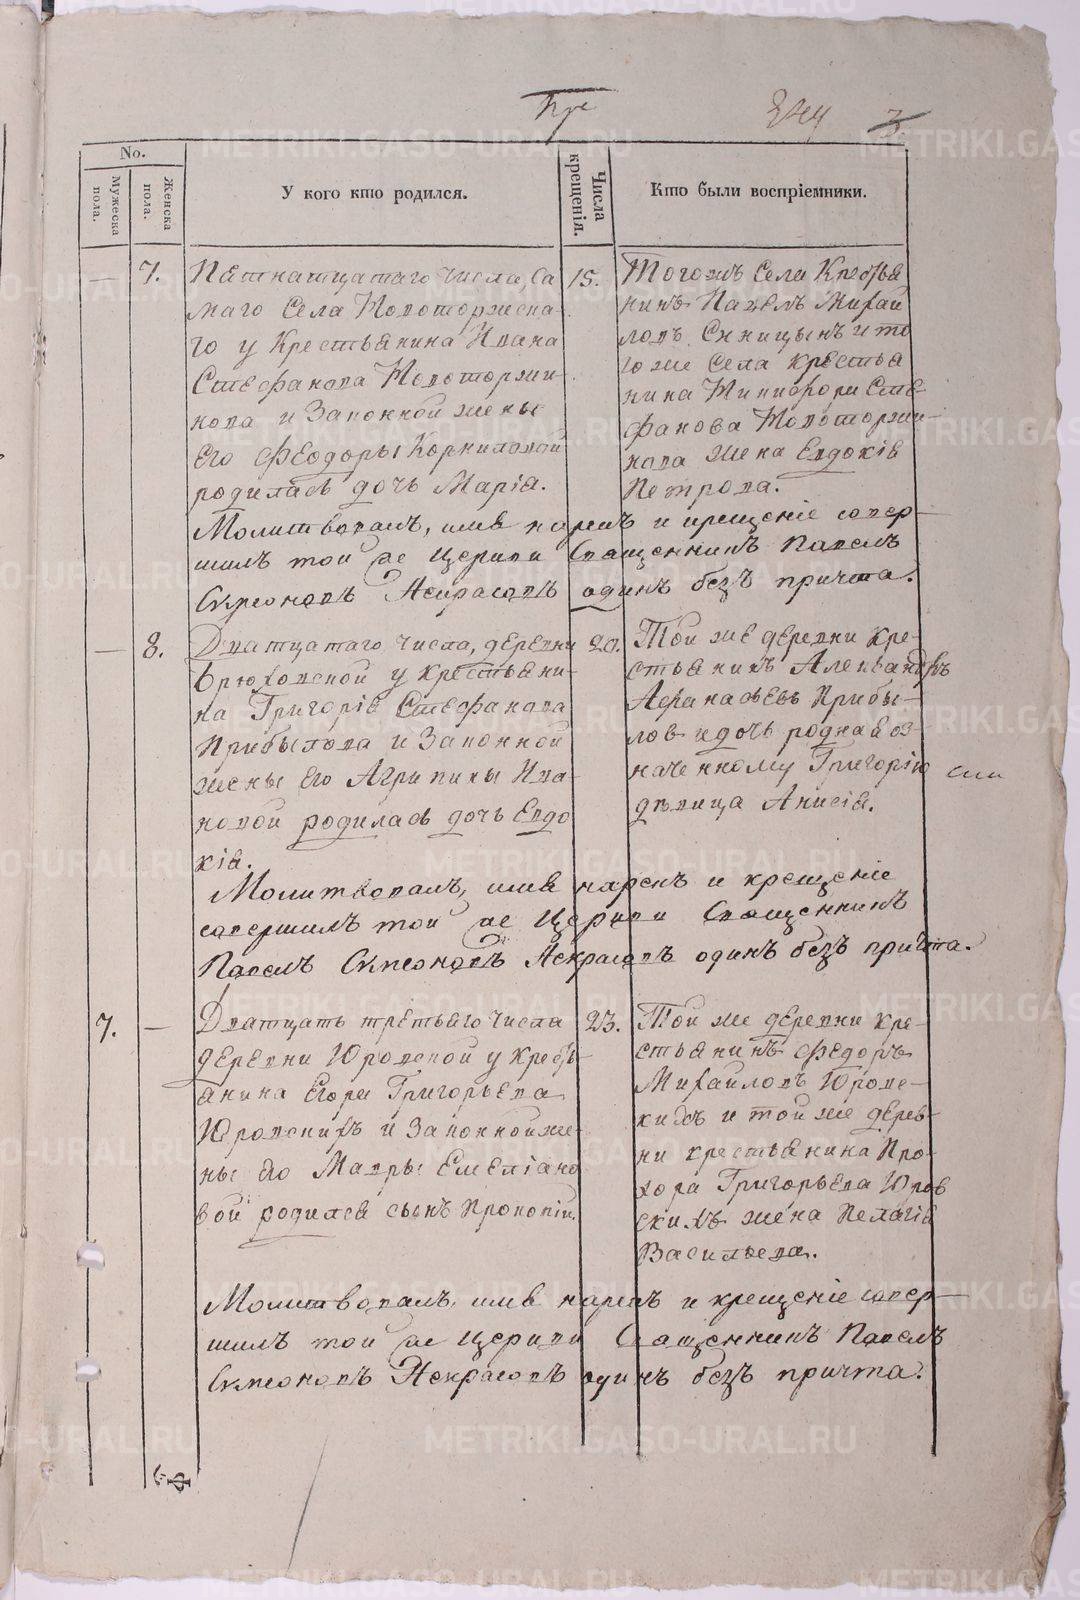 244 3
No.
Мужеска пола.
Женска пола.
У кого кто родился.
Числа крещенія.
Кто были воспріемники.
— 7.
Петнатцатаго числа, Са-
маго Села Новоторжска-
го у Крестьянина Ивана
Стефанова Новоторжи-
нова и Законной жены
Его Феодоры Корниловой
родилась дочь Марія.
15.
Тогожъ Села Кресья
нинъ Павелъ Михай
ловъ Синицынъ и то
гоже Села крестья
нина Никифора Сте
фанова Новоторжи-
нова жена Евдокія
Петрова.
Молитвовалъ, имя нарекъ и крещеніе совер-
шилъ той же Церкви Священникъ Павелъ
Симеоновъ Некрасовъ одинъ безъ причта.
— 8.
Дватцатаго числа, деревни
Брюховской у крестьяни-
на Григорія Стефанова
Прибылова и Законной
жены Его Агрипины Ива
новой родилась дочь Евдо
кія.
20.
Той же деревни кре-
стьянинъ Александръ
Афанасьевъ Прибы-
ловъ и дочь родная оз
наченному Григорію
дѣвица Анисія.
Молитвовалъ, имя нарекъ и крещеніе
совершилъ той же Церкви Священникъ
Павелъ Симеоновъ Некрасовъ одинъ безъ причта.
7. —
Дватцать третьяго числа
деревни Юровской у кресть-
янина Егора Григорьева
Юровскихъ и Законной же-
ны его Мавры Емеліано
вой родился сынъ Прокопій.
23.
Той же деревни кре-
стьянинъ Федоръ
Михайловъ Юровс-
кихъ и той же дерев-
ни крестьянина Про-
хора Григорьева Юров
скихъ жена Пелагія
Васильева.
Молитвовалъ, имя нарекъ и крещеніе совер-
шилъ той же Церкви Священникъ Павелъ
Симеоновъ Некрасовъ одинъ безъ причта.
METRIKI.GASO-URAL.RU